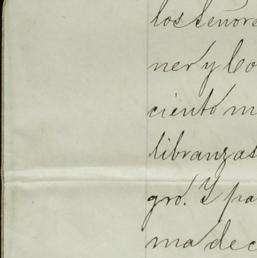 los señore
ner y Co
ciento m
libranzas
gro. Y pa
ma dec